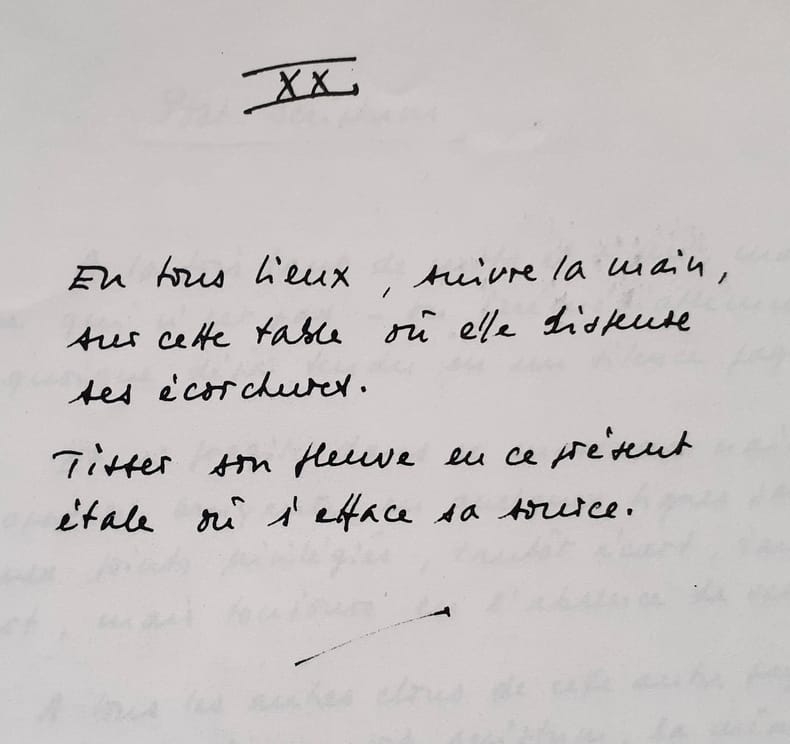 XX
En tous lieux, suivre la main,
sur cette table où elle dispense
ses écorchures.
Tisser son fleuve en ce présent
étale où s'efface sa source.